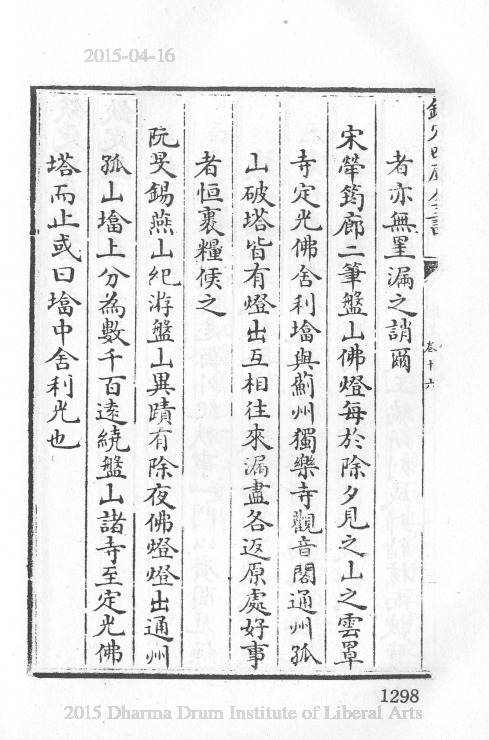 2015-04-16
欽定四庫全書
卷十六
者亦無罣漏之誚爾
宋犖筠廊二筆盤山佛燈每於除夕見之山之雲罩
寺定光佛舍利墖與薊州獨樂寺觀音閣通州孤
山破塔皆有燈出互相往來漏盡各返原處好事
者恒裹糧候之
阮旻錫燕山紀游盤山異蹟有除夜佛燈燈出通州
孤山墖上分為數千百遶繞盤山諸寺至定光佛
塔而止或曰墖中舍利光也
1298
2015 Dharma Drum Institute of Liberal Arts